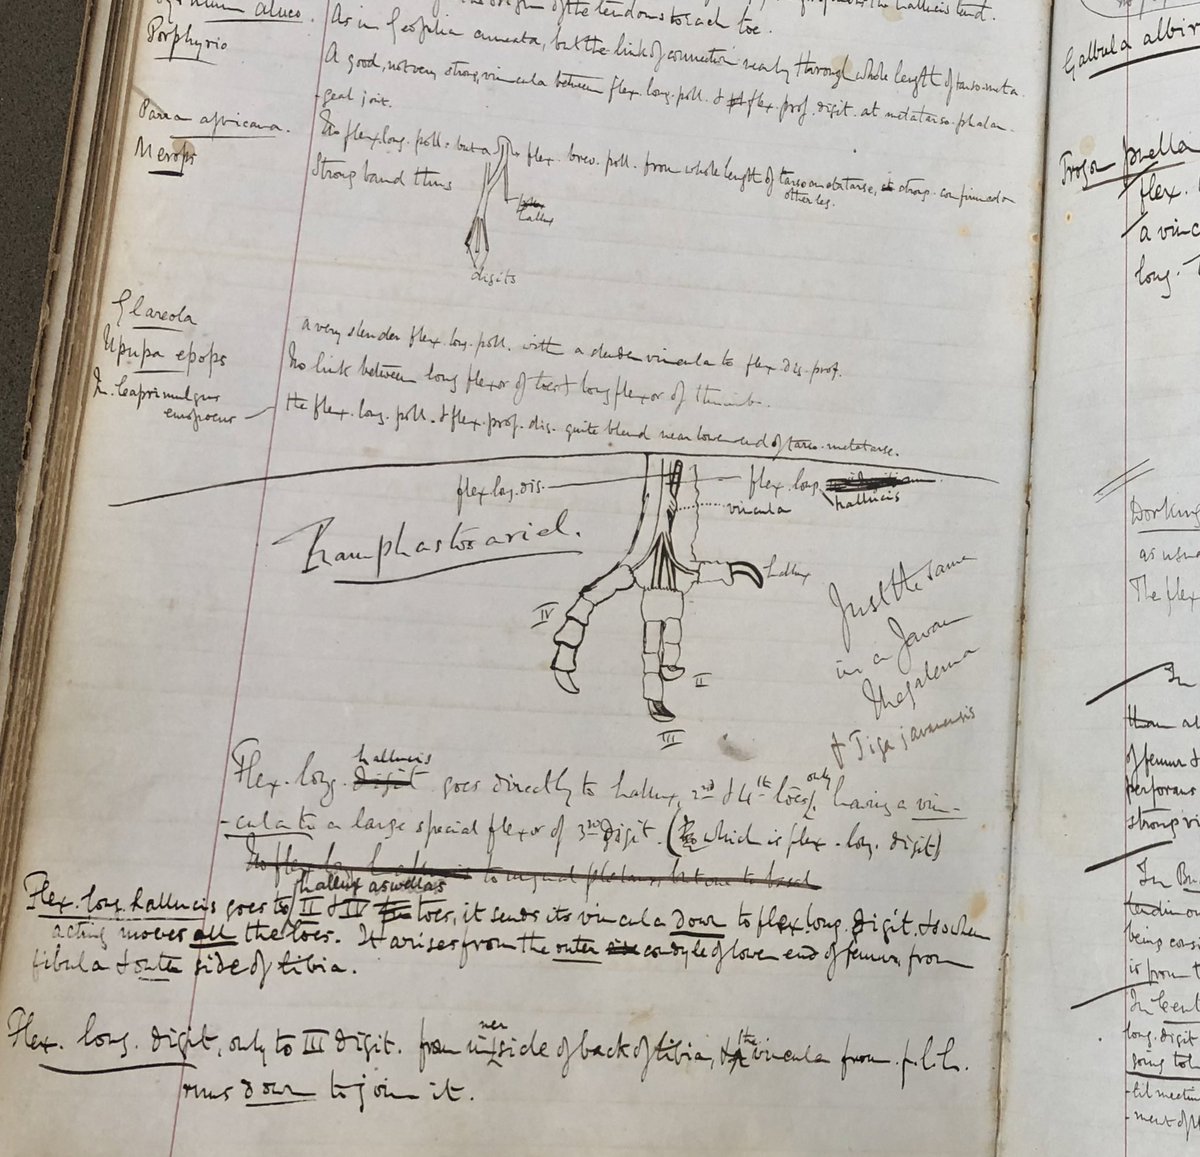 the origin of the tendons to each toe.
aluco.
As in Geopelia cuneata, but the link of connection nearly through whole length of tarso-meta.
Porphyrio
A good, not very strong, vincula between flex. long. poll. & flex. prof. digit. at metatarso-phalan-
-geal joint.
Parra africana.
No flex. long. poll. but a flex. brev. poll. from whole length of tarso metatarse, strong. confirmed on
other leg.
Merops
Strong band thus
hallux
digits
Glareola
a very slender flex. long. poll. with a slender vincula to flex. dig. prof.
Upupa epops
No link between long flexor of toes & long flexor of thumb.
In Caprimulgus
europoeus
the flex. long. poll. & flex. prof. dig. quite blend near lower end of tarso-metatarse.
flex. long. dig.
flex. long.
hallucis
vincula
Ramphastos ariel.
hallux
IV
II
III
Just the same
in a Javan
Megalema
& Tiga javanensis
hallucis
Flex. long. digit goes directly to hallux, 2nd & 4th toes, only having a vin-
-cula to a large special flexor of 3rd digit. (which is flex. long. digit)
hallux as well as
Flex. long. hallucis goes to II & IV toes, it sends its vincula down to flex. long. digit. & so when
acting moves all the toes. It arises from the outer condyle of lower end of femur, from
fibula & outer side of tibia.
Flex. long. digit, only to III digit. from inner side of back of tibia, & the vincula from f.l.h.
runs down to join it.
Galbula albir
Trogon puella
flex.
a vinc
long.
Dorking
as usu
The flex
In
than al
of femur &
perforans
strong vi
In Bu
tendon o
being cons
is from t
In Cent
long. digit
going to h